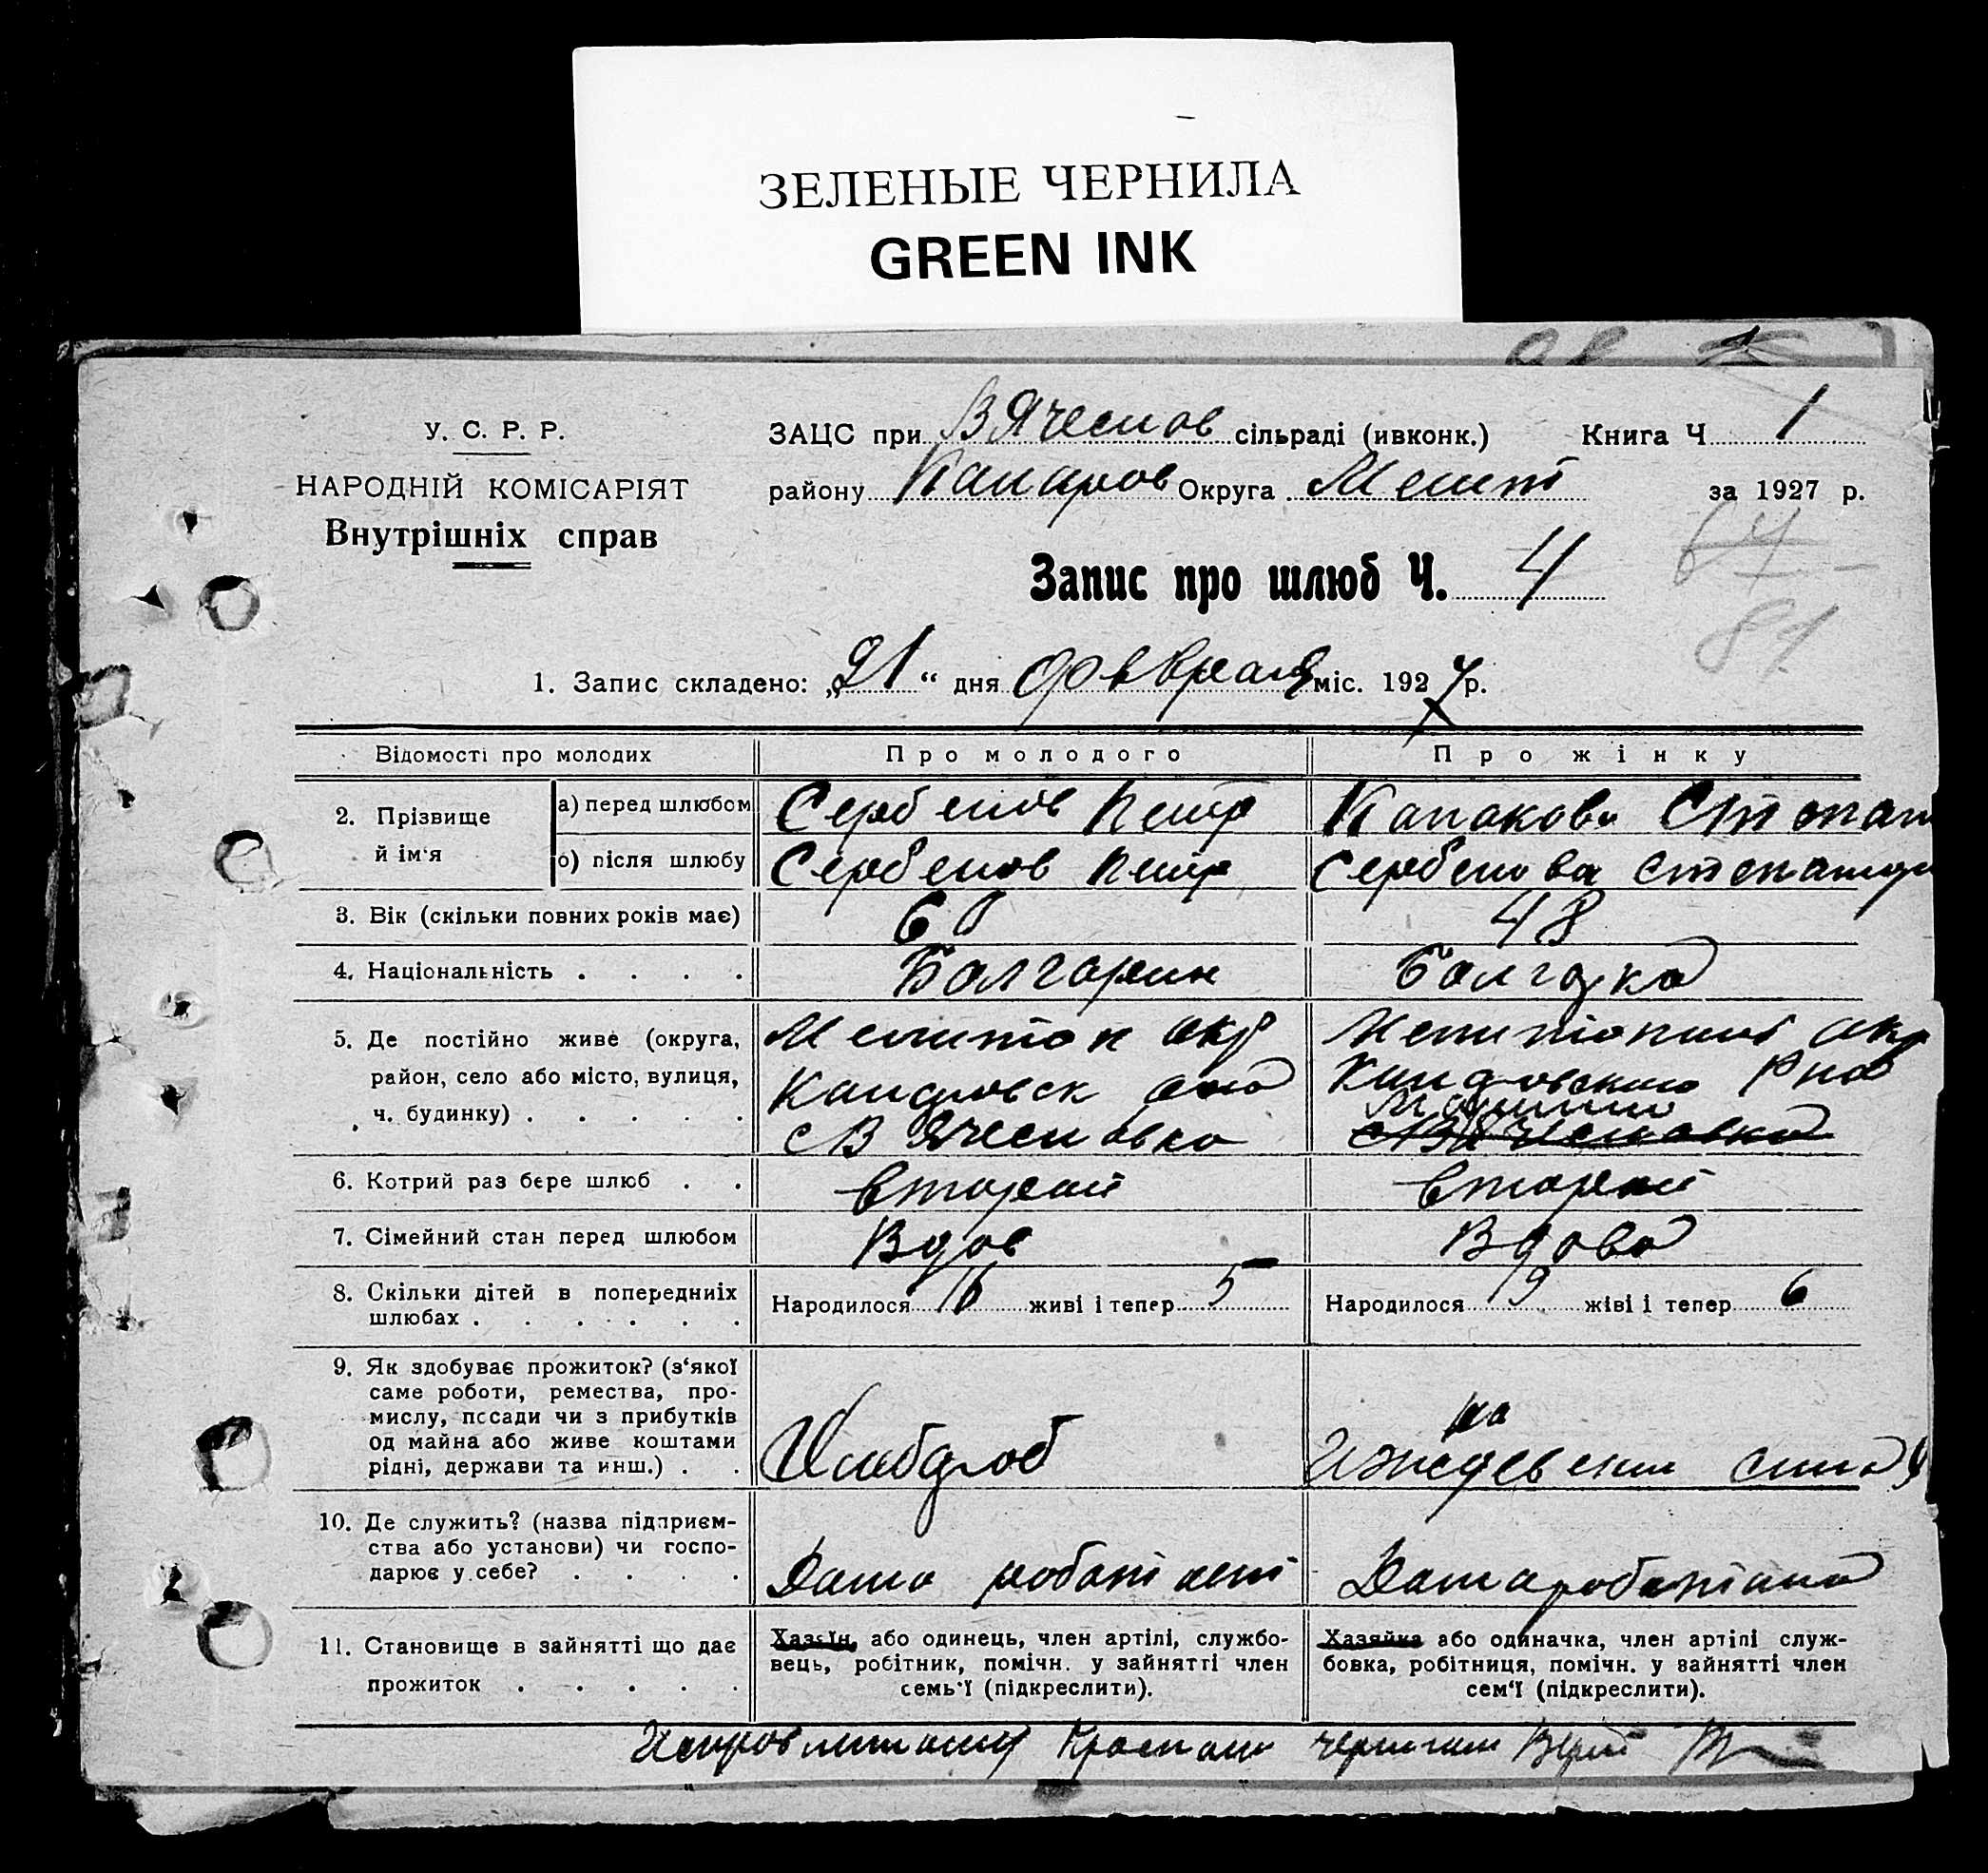 ЗЕЛЕНЫЕ ЧЕРНИЛА
GREEN INK
У. С. Р. Р.
НАРОДНІЙ КОМІСАРІЯТ
Внутрішніх справ
ЗАЦС при ВЯчеслов сільраді (ивконк.) Книга Ч 1
району Округа Мелит за 1927 р.
64
Запис про шлюб Ч. 4
84
1. Запис складено: „21“ дня февраля міс. 1927 р.
Відомості про молодих Про молодого Про жінку
2. Прізвище й ім‘я
а) перед шлюбом Сербенов Петр Капакова Степан
о) після шлюбу Сербенов Петр Сербенова Степанида
3. Вік (скільки повних років має) 60 48
4. Національність . . . . Болгарин болгарка
5. Де постійно живе (округа, район, село або місто, вулиця, ч. будинку) . . . . .
Мелитоп окр
с ВЯчеславка
Мелитопил окр
6. Котрий раз бере шлюб . . второй второй
7. Сімейний стан перед шлюбом Вдов Вдова
8. Скільки дітей в попередніх шлюбах . . . . . .
Народилося 16 живі і тепер 5 Народилося 9 жіві і тепер 6
9. Як здобуває прожиток? (з‘якої
саме роботи, ремества, про-
мислу, посади чи з прибутків
од майна або живе коштами
рідні, держави та инш.) . .
Хлебороб
на
Иждевении сина
10. Де служить? (назва підприєм-
ства або установи) чи госпо-
дарює у себе? . . . .
Дома работает Дома
11. Становище в зайнятті що дає
прожиток . . . . .
Хазяїн, або одинець, член артілі, службо-
вець, робітник, помічн. у зайнятті член
семь‘ї (підкреслити).
Хазяйка або одиначка, член артілі служ-
бовка, робітниця, помічн. у зайнятті член
сем‘ї (підкреслити).
Красними чернилами